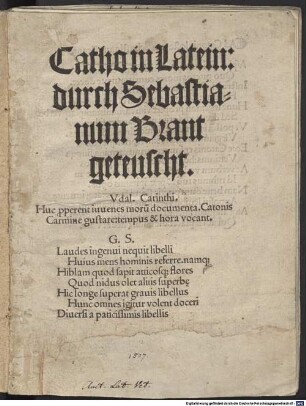 Catho in Latein:
durch Sebastia-
num Brant
geteuscht.
Vdal. Carinthi.
Huc pperent iuuenes morū documenta. Catonis
Carmine gustare: tempus & hora vocant.
G. S.
Laudes ingenui nequit libelli
Huius mens hominis referre. namq;
Hiblam quod sapit atticosq; flores
Quod nidus olet alitis superbę
Hic longe superat grauis libellus
Hunc omnes igitur volent doceri
Diuersi a paticissimis libellis
1507
Auct. Lat. Vet.